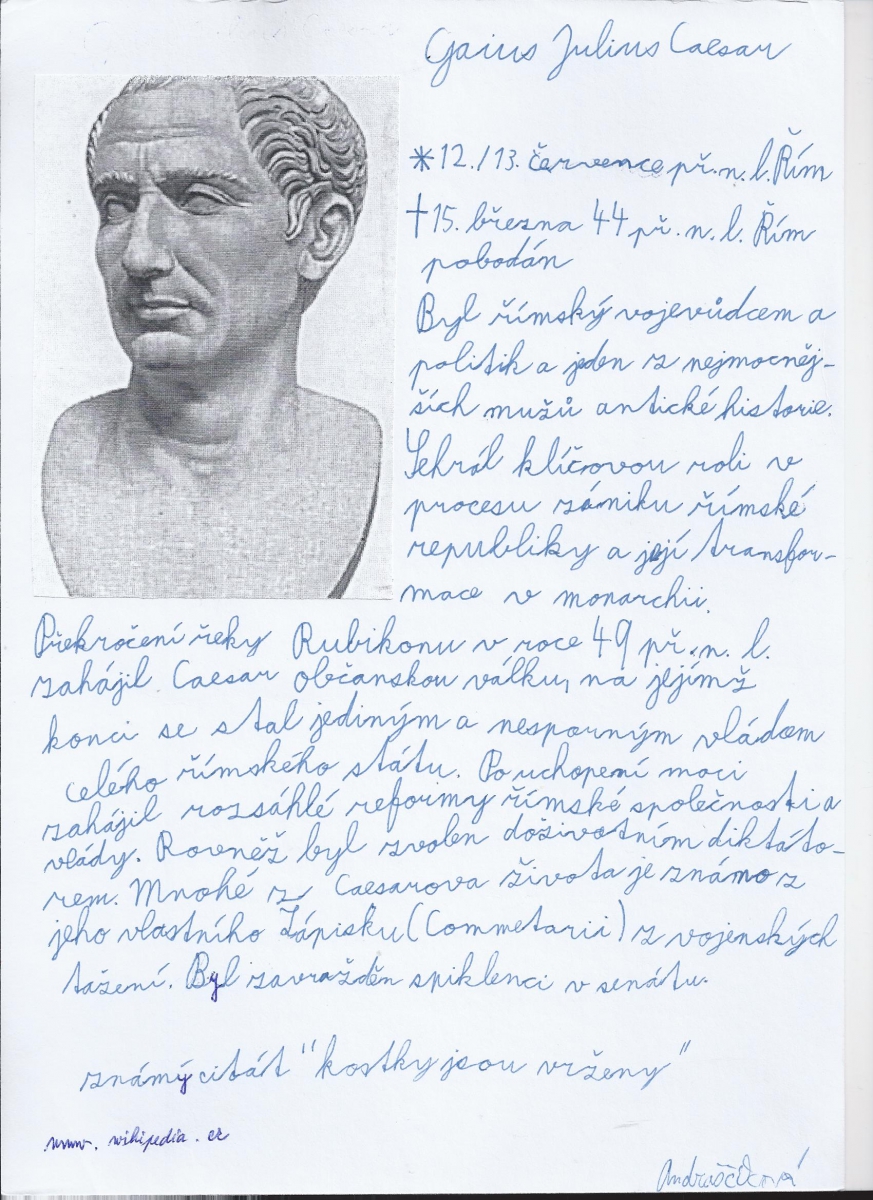 Gaius Julius Caesar
*12./13. července př. n. l. Řím
†15. března 44 př. n. l. Řím
pobodán
Byl římský vojevůdcem a
politik a jeden z nejmocněj-
ších mužů antické historie.
Sehrál klíčovou roli v
procesu zániku římské
republiky a její transfor-
mace v monarchii.
Překročení řeky Rubikonu v roce 49 př. n. l.
zahájil Caesar občanskou válku, na jejímž
konci se stal jediným a nesporným vládcem
celého římského státu. Po uchopení moci
zahájil rozsáhlé reformy římské společnosti a
vlády. Rovněž byl zvolen doživotním diktáto-
rem. Mnohé z Caesarova života je známo z
jeho vlastního Zápisků (Commetarii) z vojenských
tažení. Byl zavražděn spiklenci v senátu.
známý citát "kostky jsou vrženy"
www.wikipedia.cz